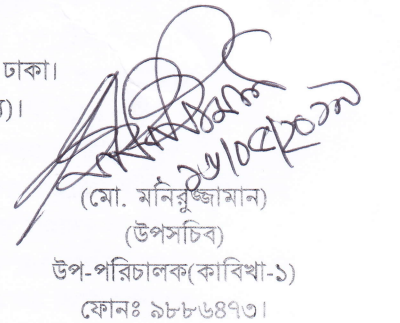 ঢাকা।
)।
১৬/০৫/২০১৯
(মো. মনিরুজ্জামান)
(উপসচিব)
উপ-পরিচালক(কাবিখা-১)
ফোনঃ ৯৮৮৬৪৭৩।